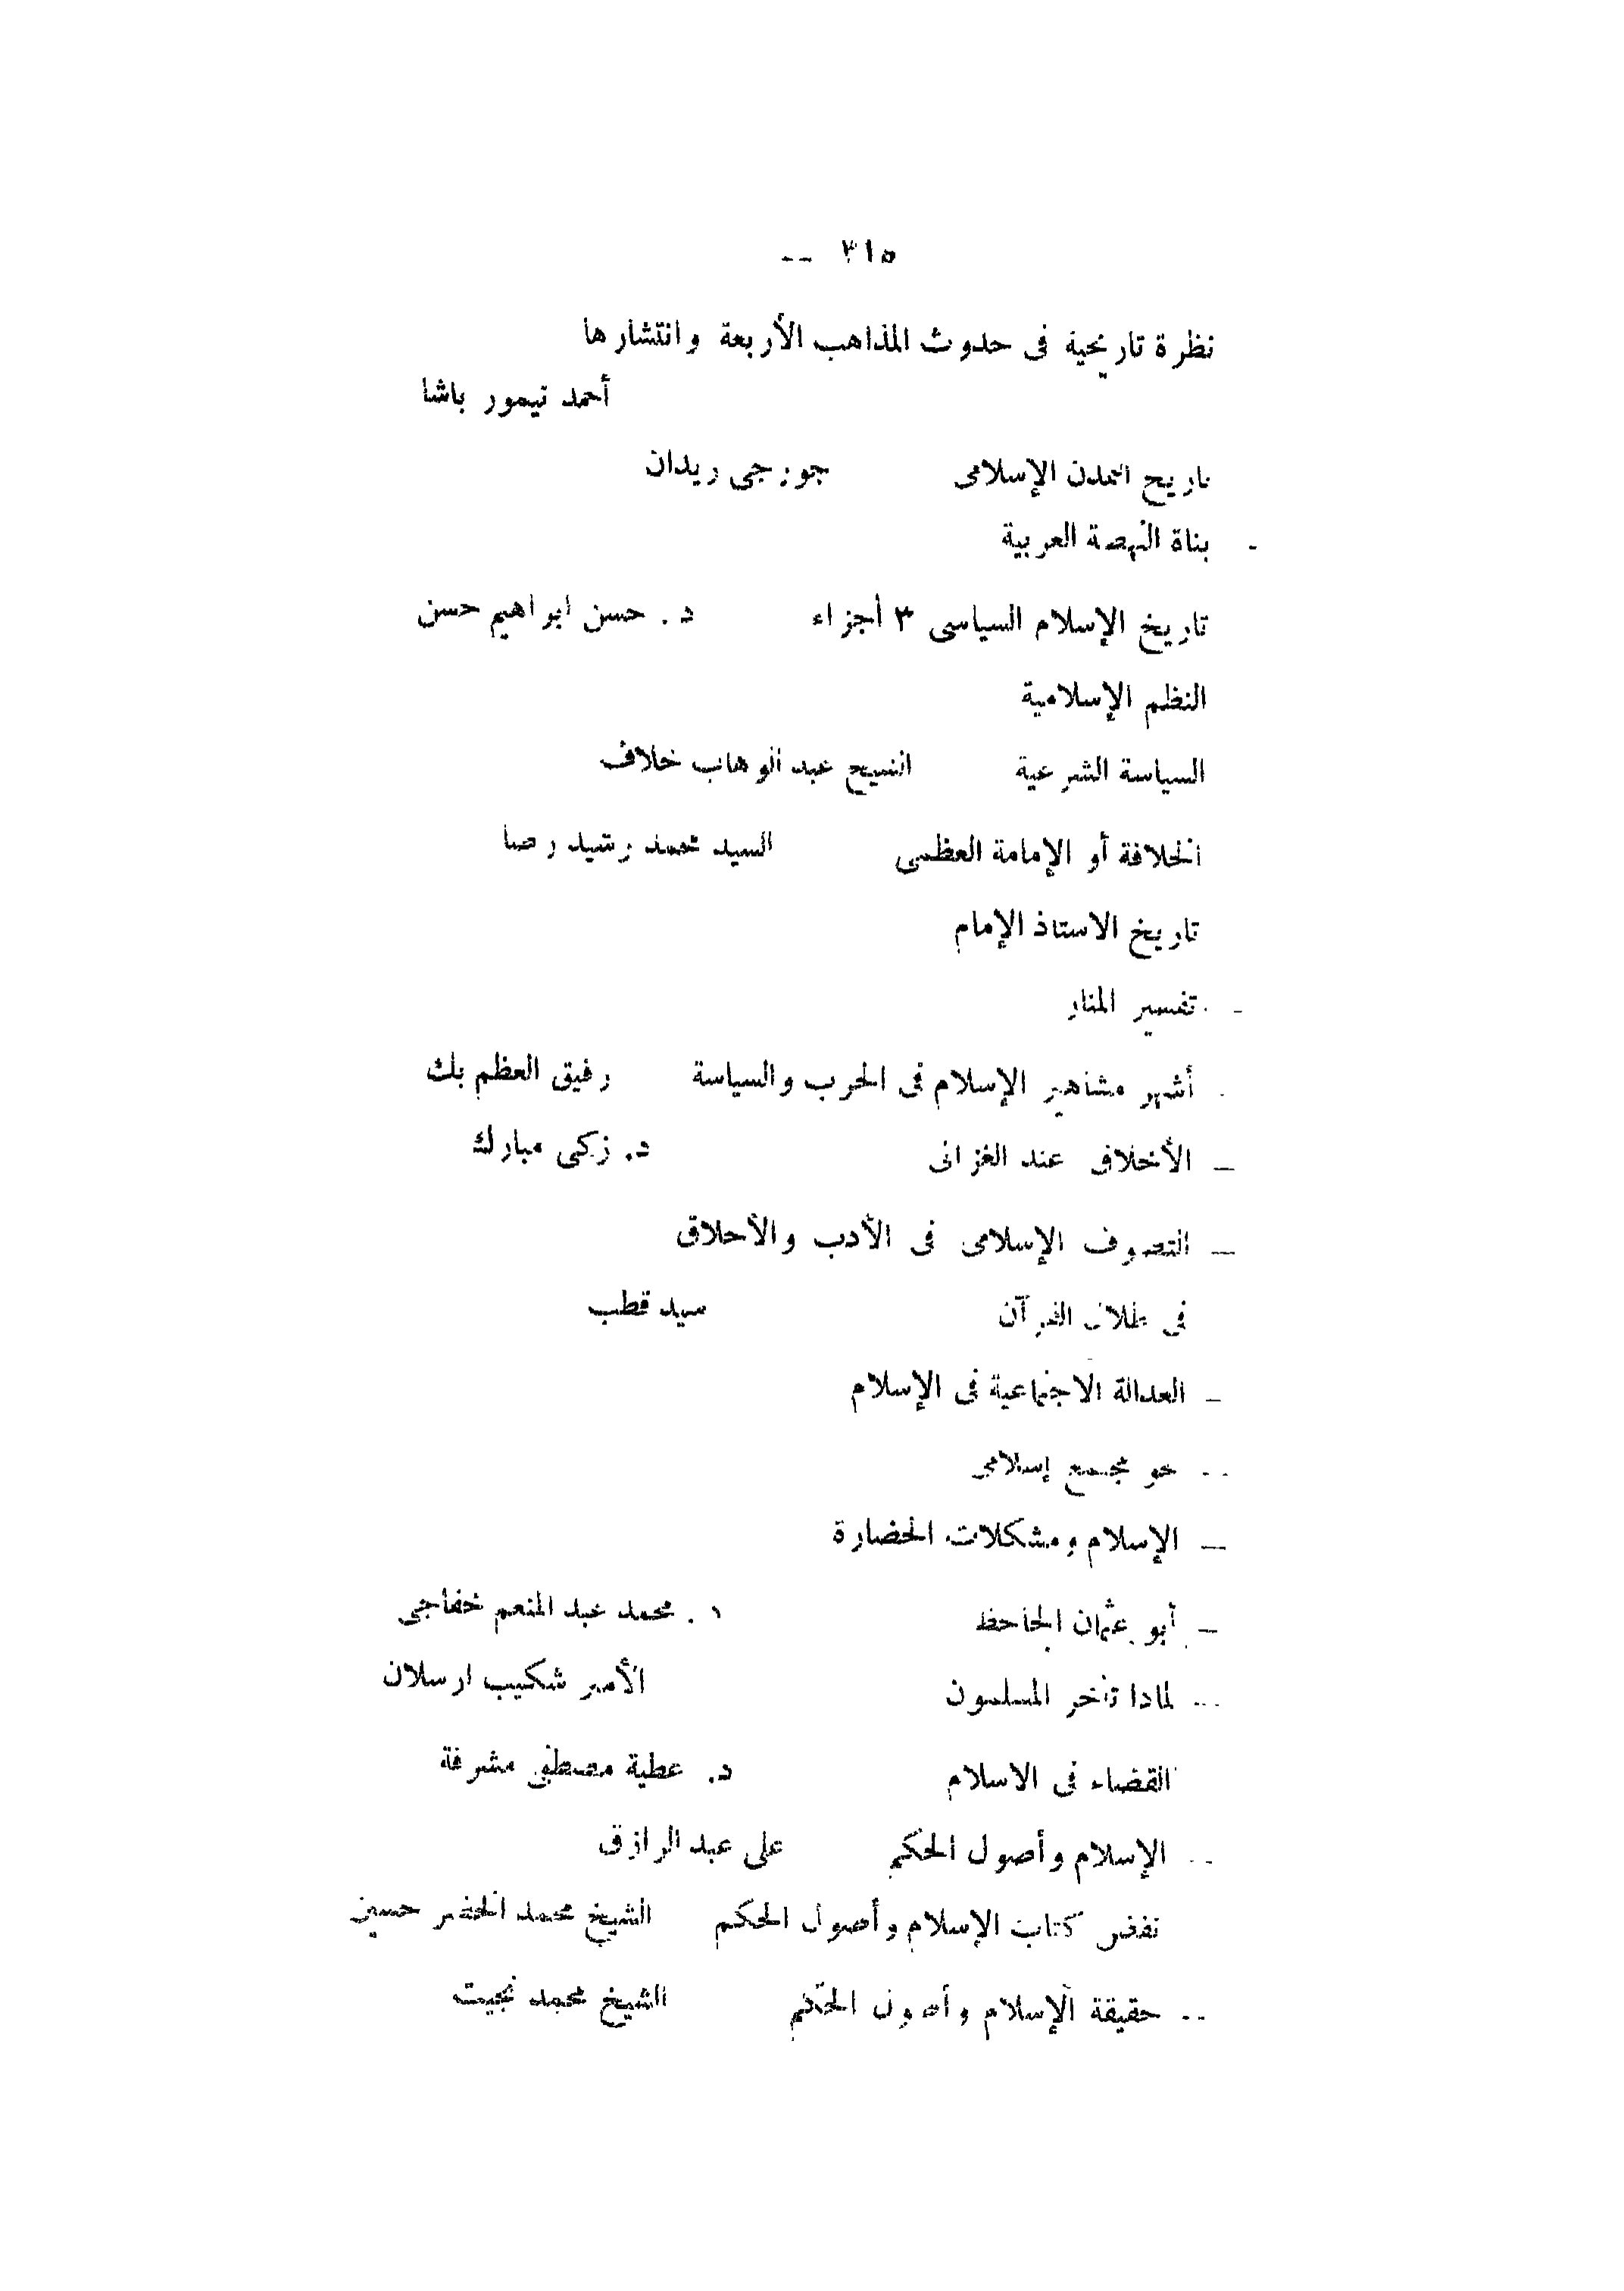 ٣١٥ --
نظرة تاريخية فى حدوث المذاهب الأربعة وانتشارها
أحمد تيمور باشا
تاريخ التمدن الإسلامى جورجى زيدان
- بناة النهضة العربية
تاريخ الإسلام السياسى ٣ أجزاء د. حسن ابراهيم حسن
النظم الإسلامية
السياسة الشرعية الشيخ عبد الوهاب خلاف
الخلافة أو الإمامة العظمى السيد محمد رشيد رضا
تاريخ الاستاذ الإمام
- تفسير المنار
أشهر مشاهير الإسلام فى الحرب والسياسة رفيق العظم بك
— الأخلاق عند الغزالى د. زكى مبارك
— التصوف الإسلامى فى الأدب والأخلاق
فى ظلال القرآن سيد قطب
— العدالة الاجتماعية فى الإسلام
-- نحو مجتمع إسلامى
— الإسلام ومشكلات الحضارة
— أبو عثمان الجاحظ د. محمد عبد المنعم خفاجى
-- لماذا تأخر المسلمون الأمير شكيب ارسلان
القضاء فى الاسلام د. عطية مصطفى مشرفة
-- الإسلام وأصول الحكم على عبد الرازق
نقض كتاب الإسلام وأصول الحكم الشيخ محمد الخضر حسين
-- حقيقة الإسلام وأصول الحكم الشيخ محمد نجيت